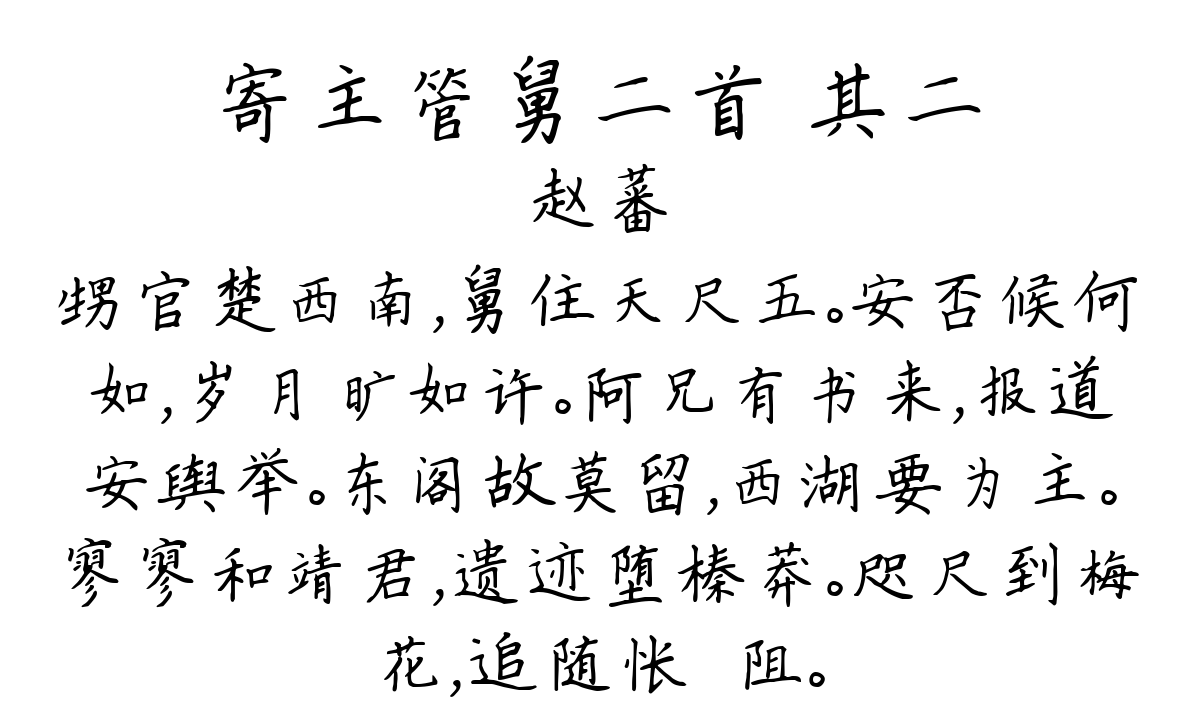 寄主管舅二首 其二
赵蕃
甥官楚西南,舅住天尺五。安否候何
如,岁月旷如许。阿兄有书来,报道
安舆举。东阁故莫留,西湖要为主。
寥寥和靖君,遗迹堕榛莽。咫尺到梅
花,追随怅 阻。